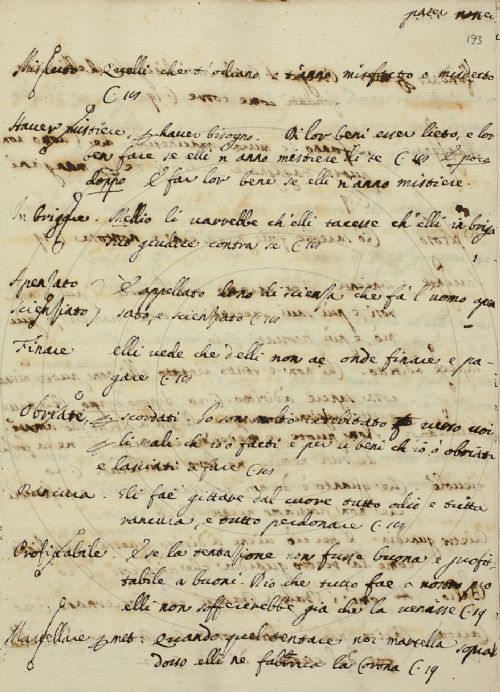 193
Misfatto Quelli che t'odiano e t'anno misfatto o misdetto
C 181
Haver mistiere, haver bisogno. Di lor beni esser lieto, e lor
ben fare se elli n'anno mestiere di te C e poco
doppo E far lor bene se elli n'anno mistiere.
In brigasse. Mellio li varrebbe ch'elli tacesse ch'elli in briga
giudice contra se C
Apensato
Scienziato È appellato dono di scienza che fà l'uomo apen
sato, e scienziato C
Finare elli vede che d'elli non ae onde finare e pa-
gare C
Obriate, scordati. Io son molto indebitato verso voi
li mali ch'io ò fatti e per li beni ch'io ò obriati
e lasciati a fare C
Rancura. Eli fae gittare dal cuore tutto odio e tutta
rancura, e tutto perdonare C
Profitabile E se la tentazione non fusse buona e profi-
tabile a buoni Dio che tutto fae a nostro pro
elli non sofferrebbe già che la venisse C 19
Martellare met: Quando quel tentare noi martella
dosso elli ne fabbrica la Corona C 19